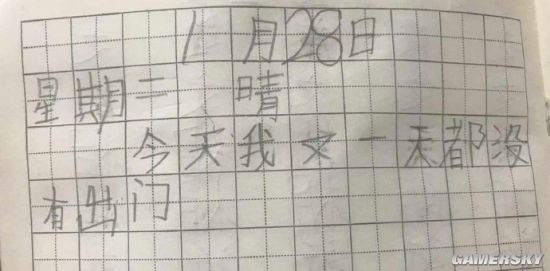 1月28日
星期二 晴
今天我又一天都没
有出门
GAMERSKY